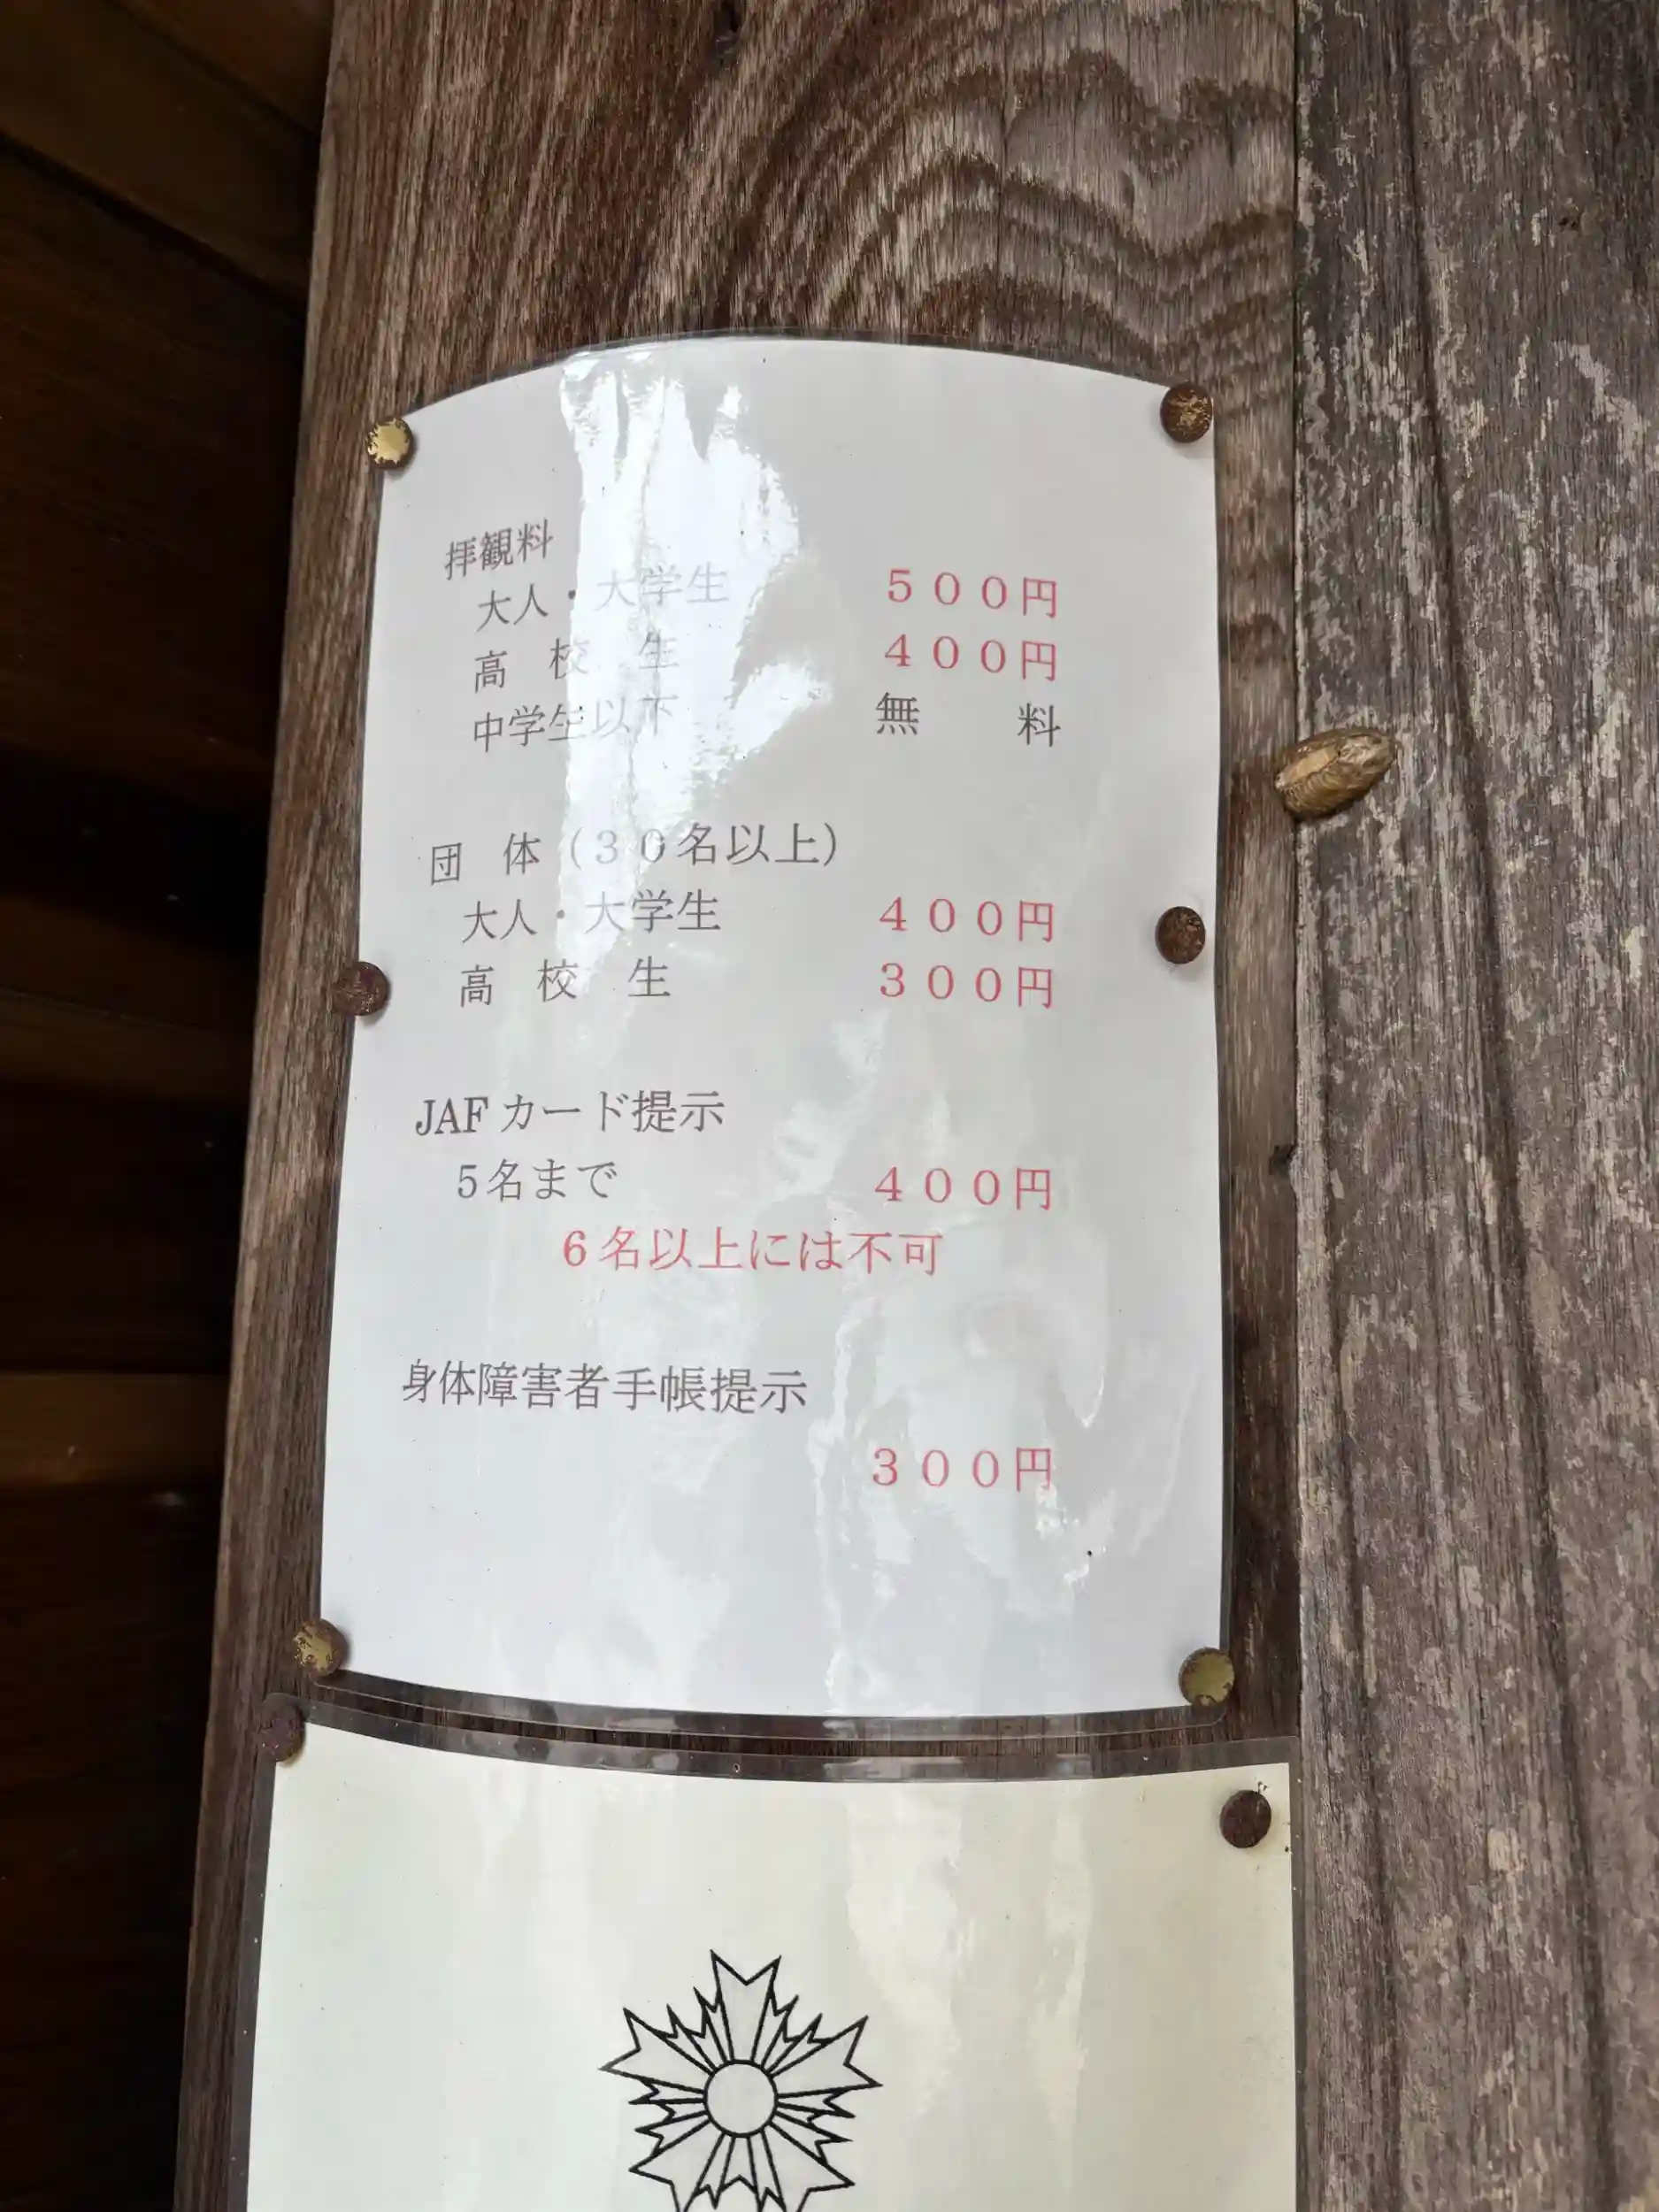 拝観料
大人・大学生　５００円
高　校　生　４００円
中学生以下　無　料
団　体（３０名以上）
大人・大学生　４００円
高　校　生　３００円
JAFカード提示
５名まで　４００円
６名以上には不可
身体障害者手帳提示
３００円